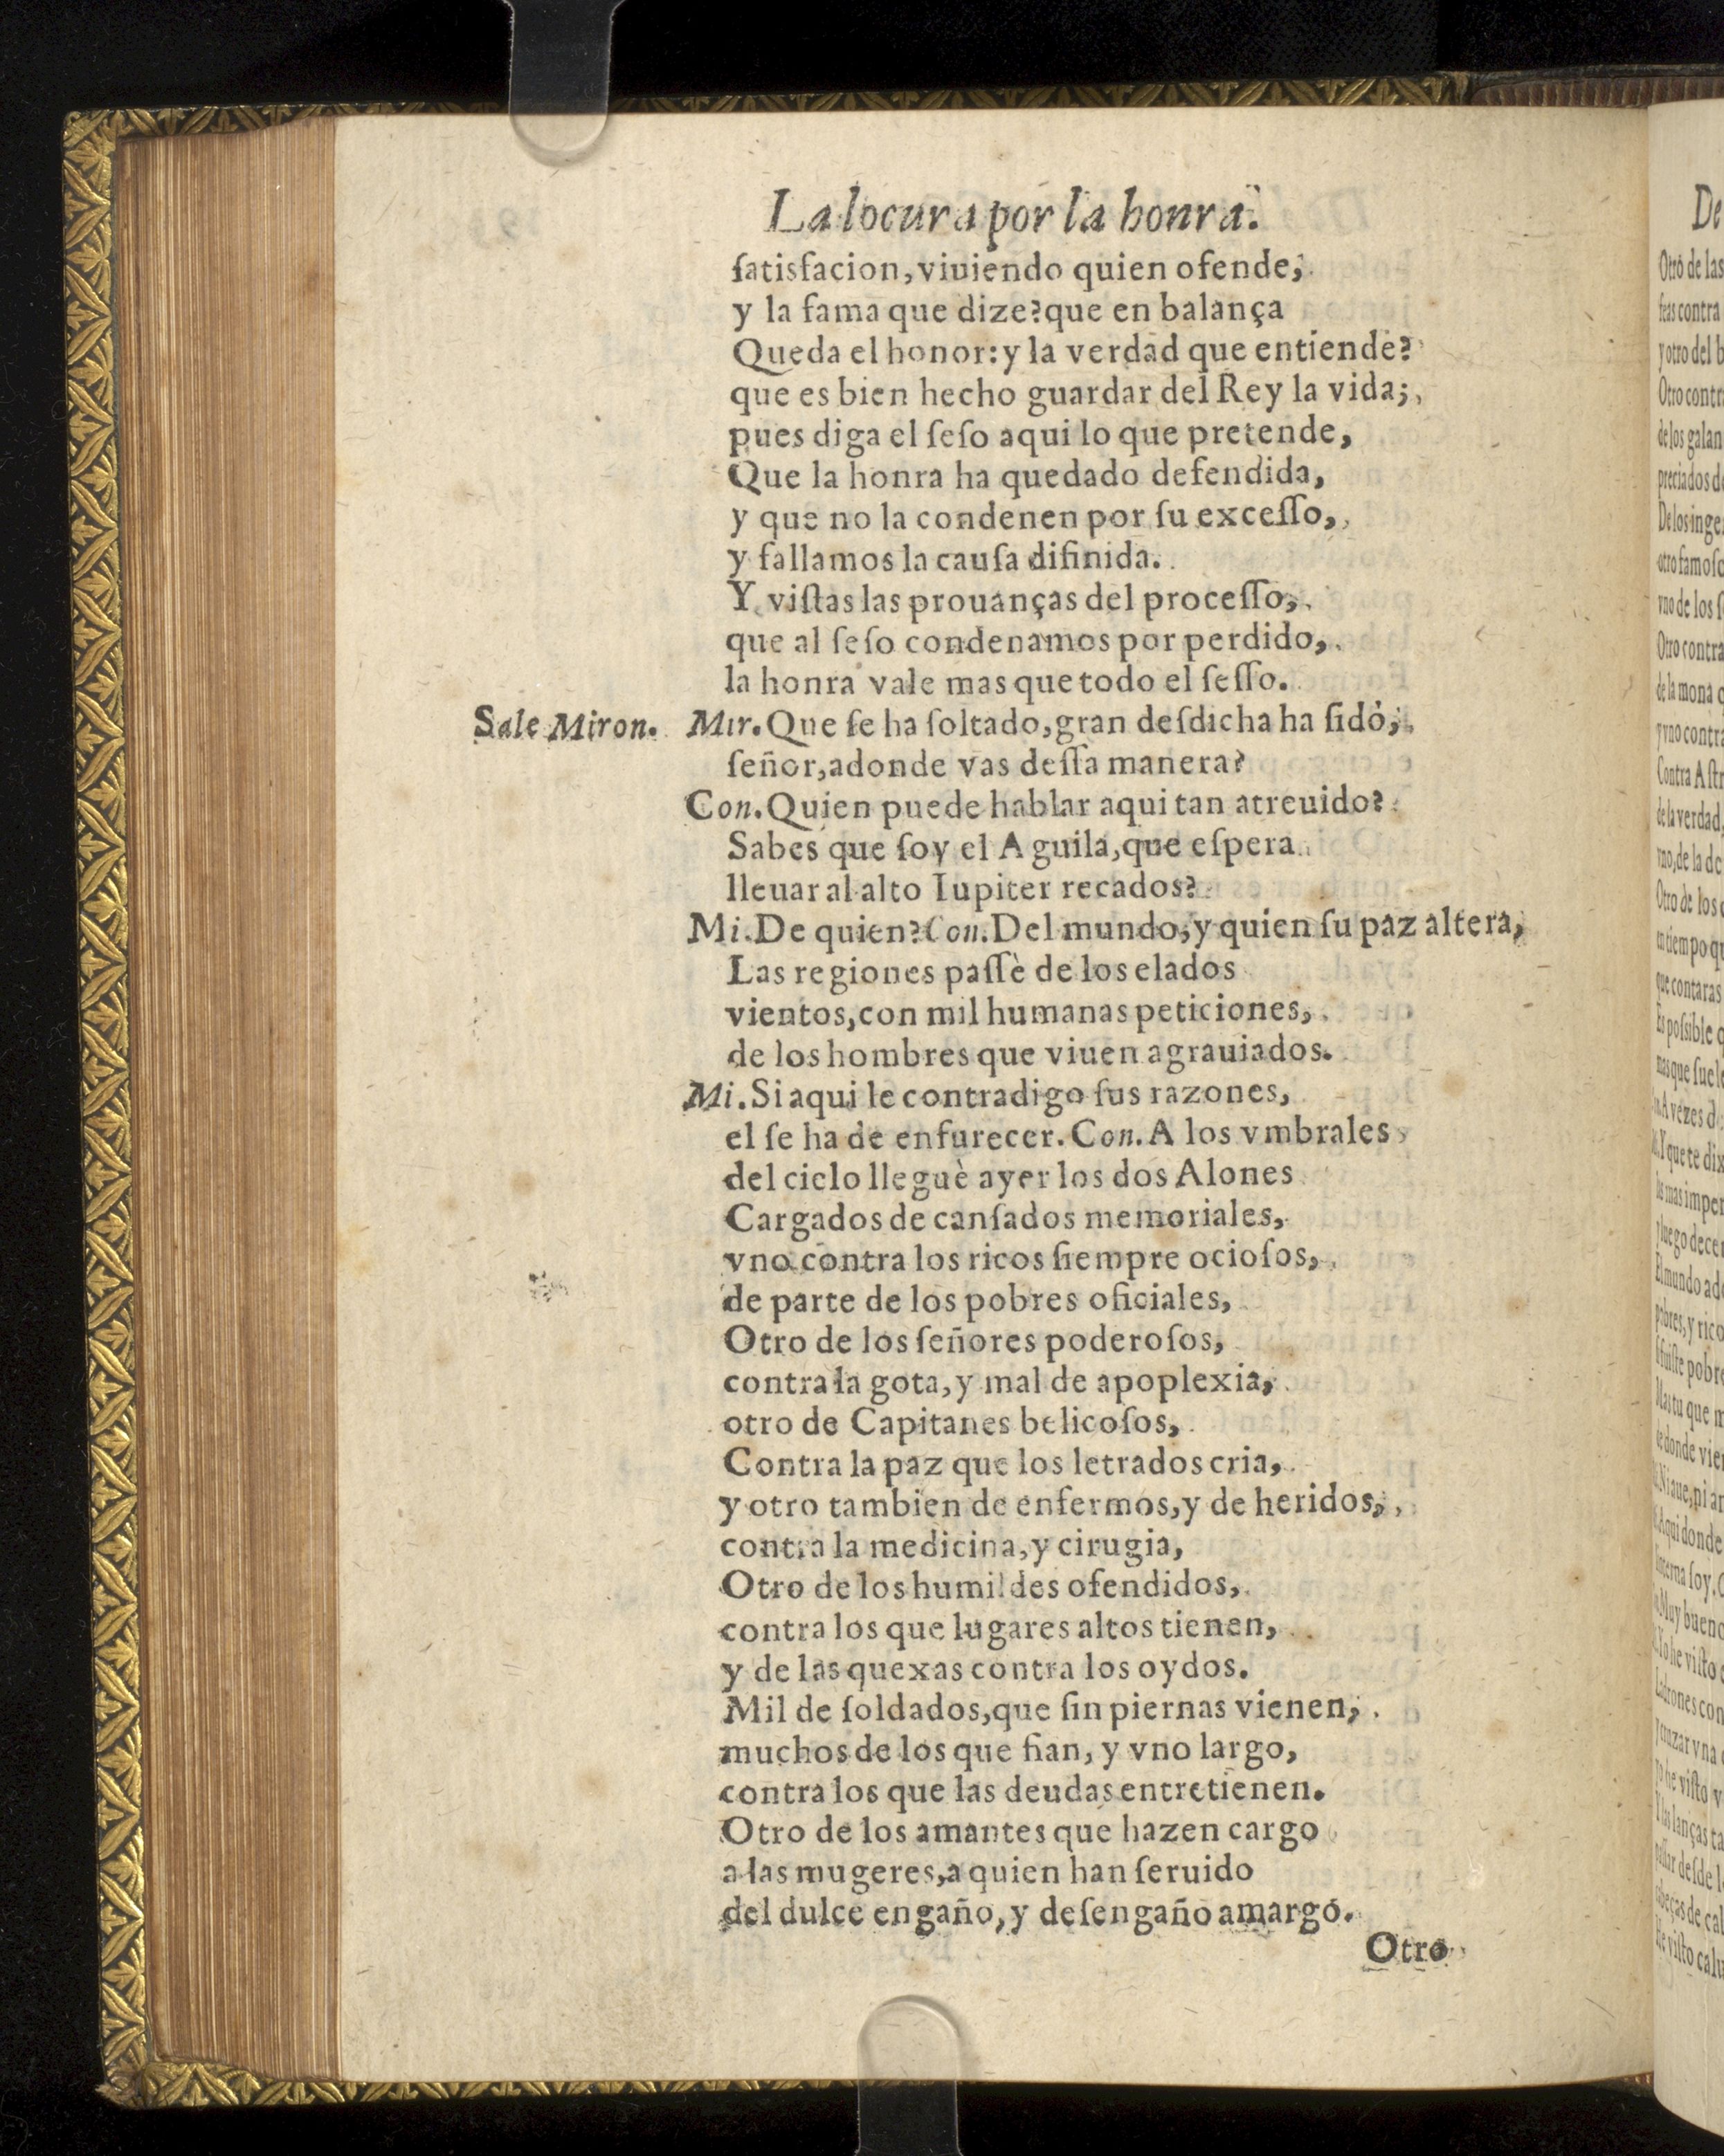 La locura por la honra.
ſatisfacion, viuiendo quien ofende,
y la fama que dize? que en balança
Queda el honor: y la verdad que entiende?
que es bien hecho guardar del Rey la vida;
pues diga el ſeſo aqui lo que pretende,
Que la honra ha quedado defendida,
y que no la condenen por ſu exceſſo,
y fallamos la cauſa difinida.
Y viſtas las prouanças del proceſſo,
que al ſeſo condenamos por perdido,
la honra vale mas que todo el ſeſſo.
Sale Miron. Mir. Que ſe ha ſoltado, gran deſdicha ha ſido,
ſeñor, adonde vas deſſa manera?
Con. Quien puede hablar aqui tan atreuido?
Sabes que ſoy el Aguila, que eſpera
lleuar al alto Iupiter recados?
Mi. De quien? Con. Del mundo, y quien ſu paz altera,
Las regiones paſſè de los elados
vientos, con mil humanas peticiones,
de los hombres que viuen agrauiados.
Mi. Si aqui le contradigo ſus razones,
el ſe ha de enfurecer. Con. A los vmbrales
del cielo lleguè ayer los dos Alones
Cargados de canſados memoriales,
vno contra los ricos ſiempre ocioſos,
de parte de los pobres oficiales,
Otro de los ſeñores poderoſos,
contra la gota, y mal de apoplexia,
otro de Capitanes belicoſos,
Contra la paz que los letrados cria,
y otro tambien de enfermos, y de heridos,
contra la medicina, y cirugia,
Otro de los humildes ofendidos,
contra los que lugares altos tienen,
y de las quexas contra los oydos.
Mil de ſoldados, que ſin piernas vienen,
muchos de los que fian, y vno largo,
contra los que las deudas entretienen.
Otro de los amantes que hazen cargo
a las mugeres, a quien han ſeruido
del dulce engaño, y deſengaño amargo.
Otro
De
Otro de las
feas contra
y otro del b
Otro contra
de los galan
preciados de
De los inge
otro famoſo
vno de los ſ
Otro contra
de la mona
y vno contra
Contra Aſtr
de la verdad,
vno, de la de
Otro de los
en tiempo qu
que contaras
Es poſsible
mas que ſuele
A vezes d
Y que te dix